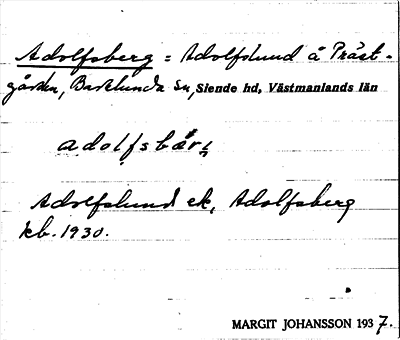 Adolfsberg = Adolfslund å Präst-
gården, Barkarö sn, Siende hd, Västmanlands län
adolfsbærj
Adolfslund ek, Adolfsberg
kb. 1930.
MARGIT JOHANSSON 1937.